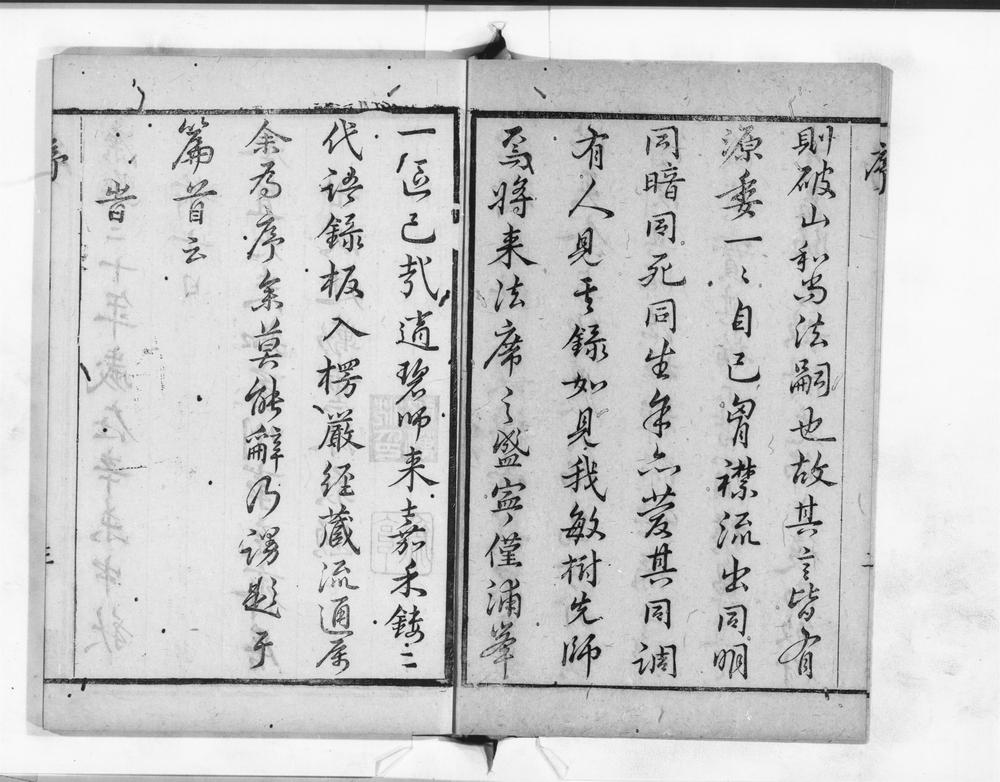 序
則破山和尚法嗣也故其言皆有
源委一〻自己胷襟流出同明
同暗同死同生余亦愛其同調
有人見其錄如見我敏樹先師
焉將来法席之盛寧僅浦峯
一區已哉逍碧師来嘉禾鋟二
代語錄板入楞嚴經藏流通属
余為序余莫能辭乃謁題于
篇首云
旹
序